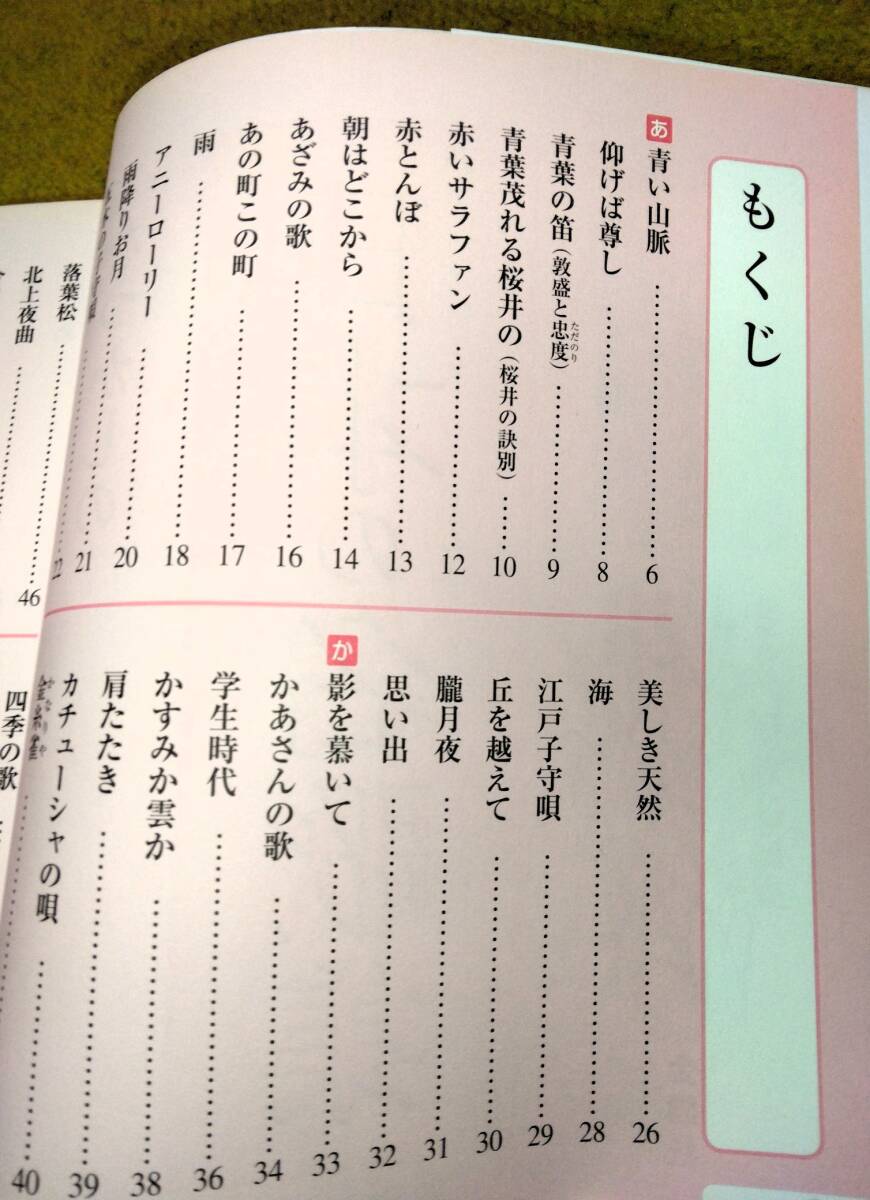 もくじ
あ
青い山脈 …… 6
仰げば尊し …… 8
青葉の笛(敦盛と忠度) …… 9
ただのり
青葉茂れる桜井の(桜井の訣別) …… 10
赤いサラファン …… 12
赤とんぼ …… 13
朝はどこから …… 14
あざみの歌 …… 16
あの町この町 …… 17
雨 …… 18
アニーローリー …… 20
雨降りお月 …… 21
22
美しき天然 …… 26
海 …… 28
江戸子守唄 …… 29
丘を越えて …… 30
朧月夜 …… 31
思い出 …… 32
か
影を慕いて …… 33
かあさんの歌 …… 34
学生時代 …… 36
かすみか雲か …… 38
肩たたき …… 39
カチューシャの唄 …… 40
金糸雀
かなりや
落葉松
北上夜曲 …… 46
四季の歌